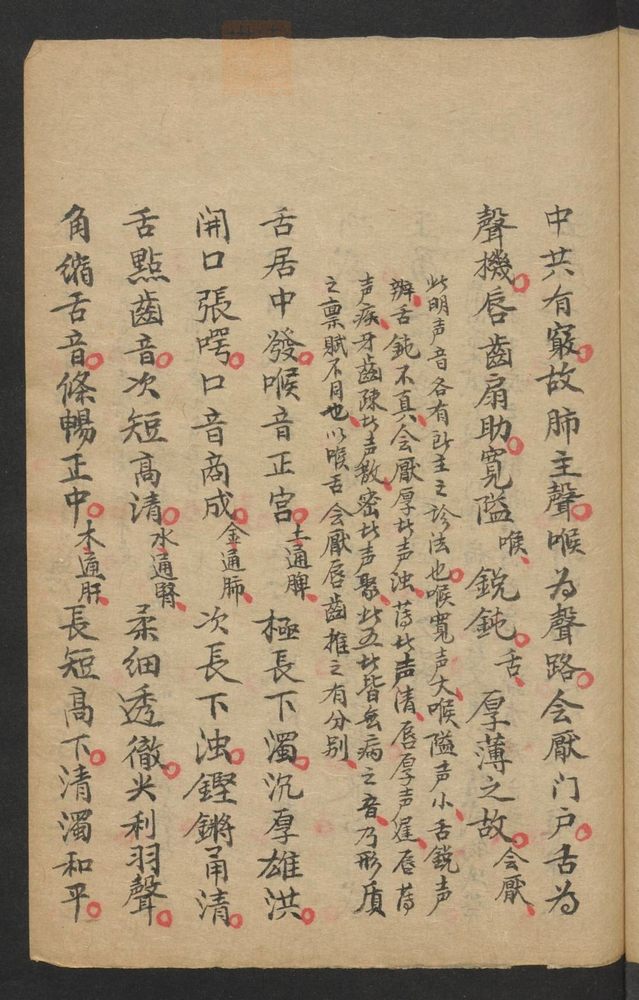 中共有竅故肺主聲喉为聲路会厭门户舌为
聲機唇齒扇助寬隘喉、鋭鈍舌、厚薄之故会厭、
此明声音各有所主之診法也喉寬声大喉隘声小舌鋭声
辨舌鈍不真会厭厚者声浊薄者声清唇厚声遲唇薄
声疾牙齒疎者声散密者声聚此五者皆無病之音乃形质
之禀賦不同也以喉舌会厭唇齒推之有分别
舌居中發喉音正宫土通脾、極長下濁沉厚雄洪
開口張㗁口音商成金通肺、次長下浊鏗鏘甬清
舌點齒音次短高清水通腎、柔细透徹尖利羽聲
角缩舌音條暢正中木通肝、長短高下清濁和平